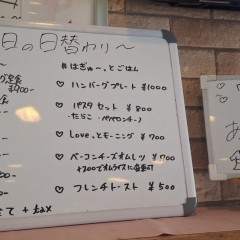 日の日替わり〜
#はぎゅ〜っとごはん
♡ ハンバーグプレート ¥1000
♡ パスタセット ¥800
・たらこ ・ペペロンチーノ
♡ Loveっとモーニング ¥700
♡ ベーコンチーズオムレツ ¥700
+200でオムライスに変更可
♡ フレンチトースト ¥500
て + tax